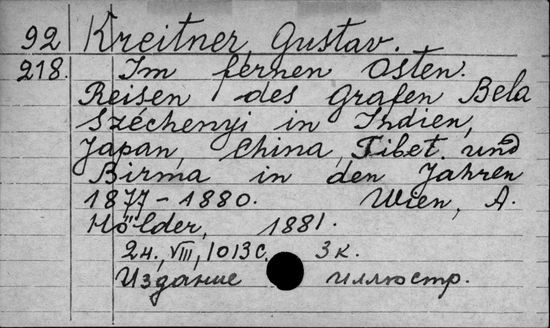 92 Kreitner, Gustav.
218. Im fernen Osten.
Reisen des Grafen Bela
Széchenyi in Indien,
Japan, China, Tibet und
Birma in den Jahren
1877-1880. Wien, A.
Hölder, 1881.
24., VIII, 1013 с. 3 к.
Издание иллюстр.